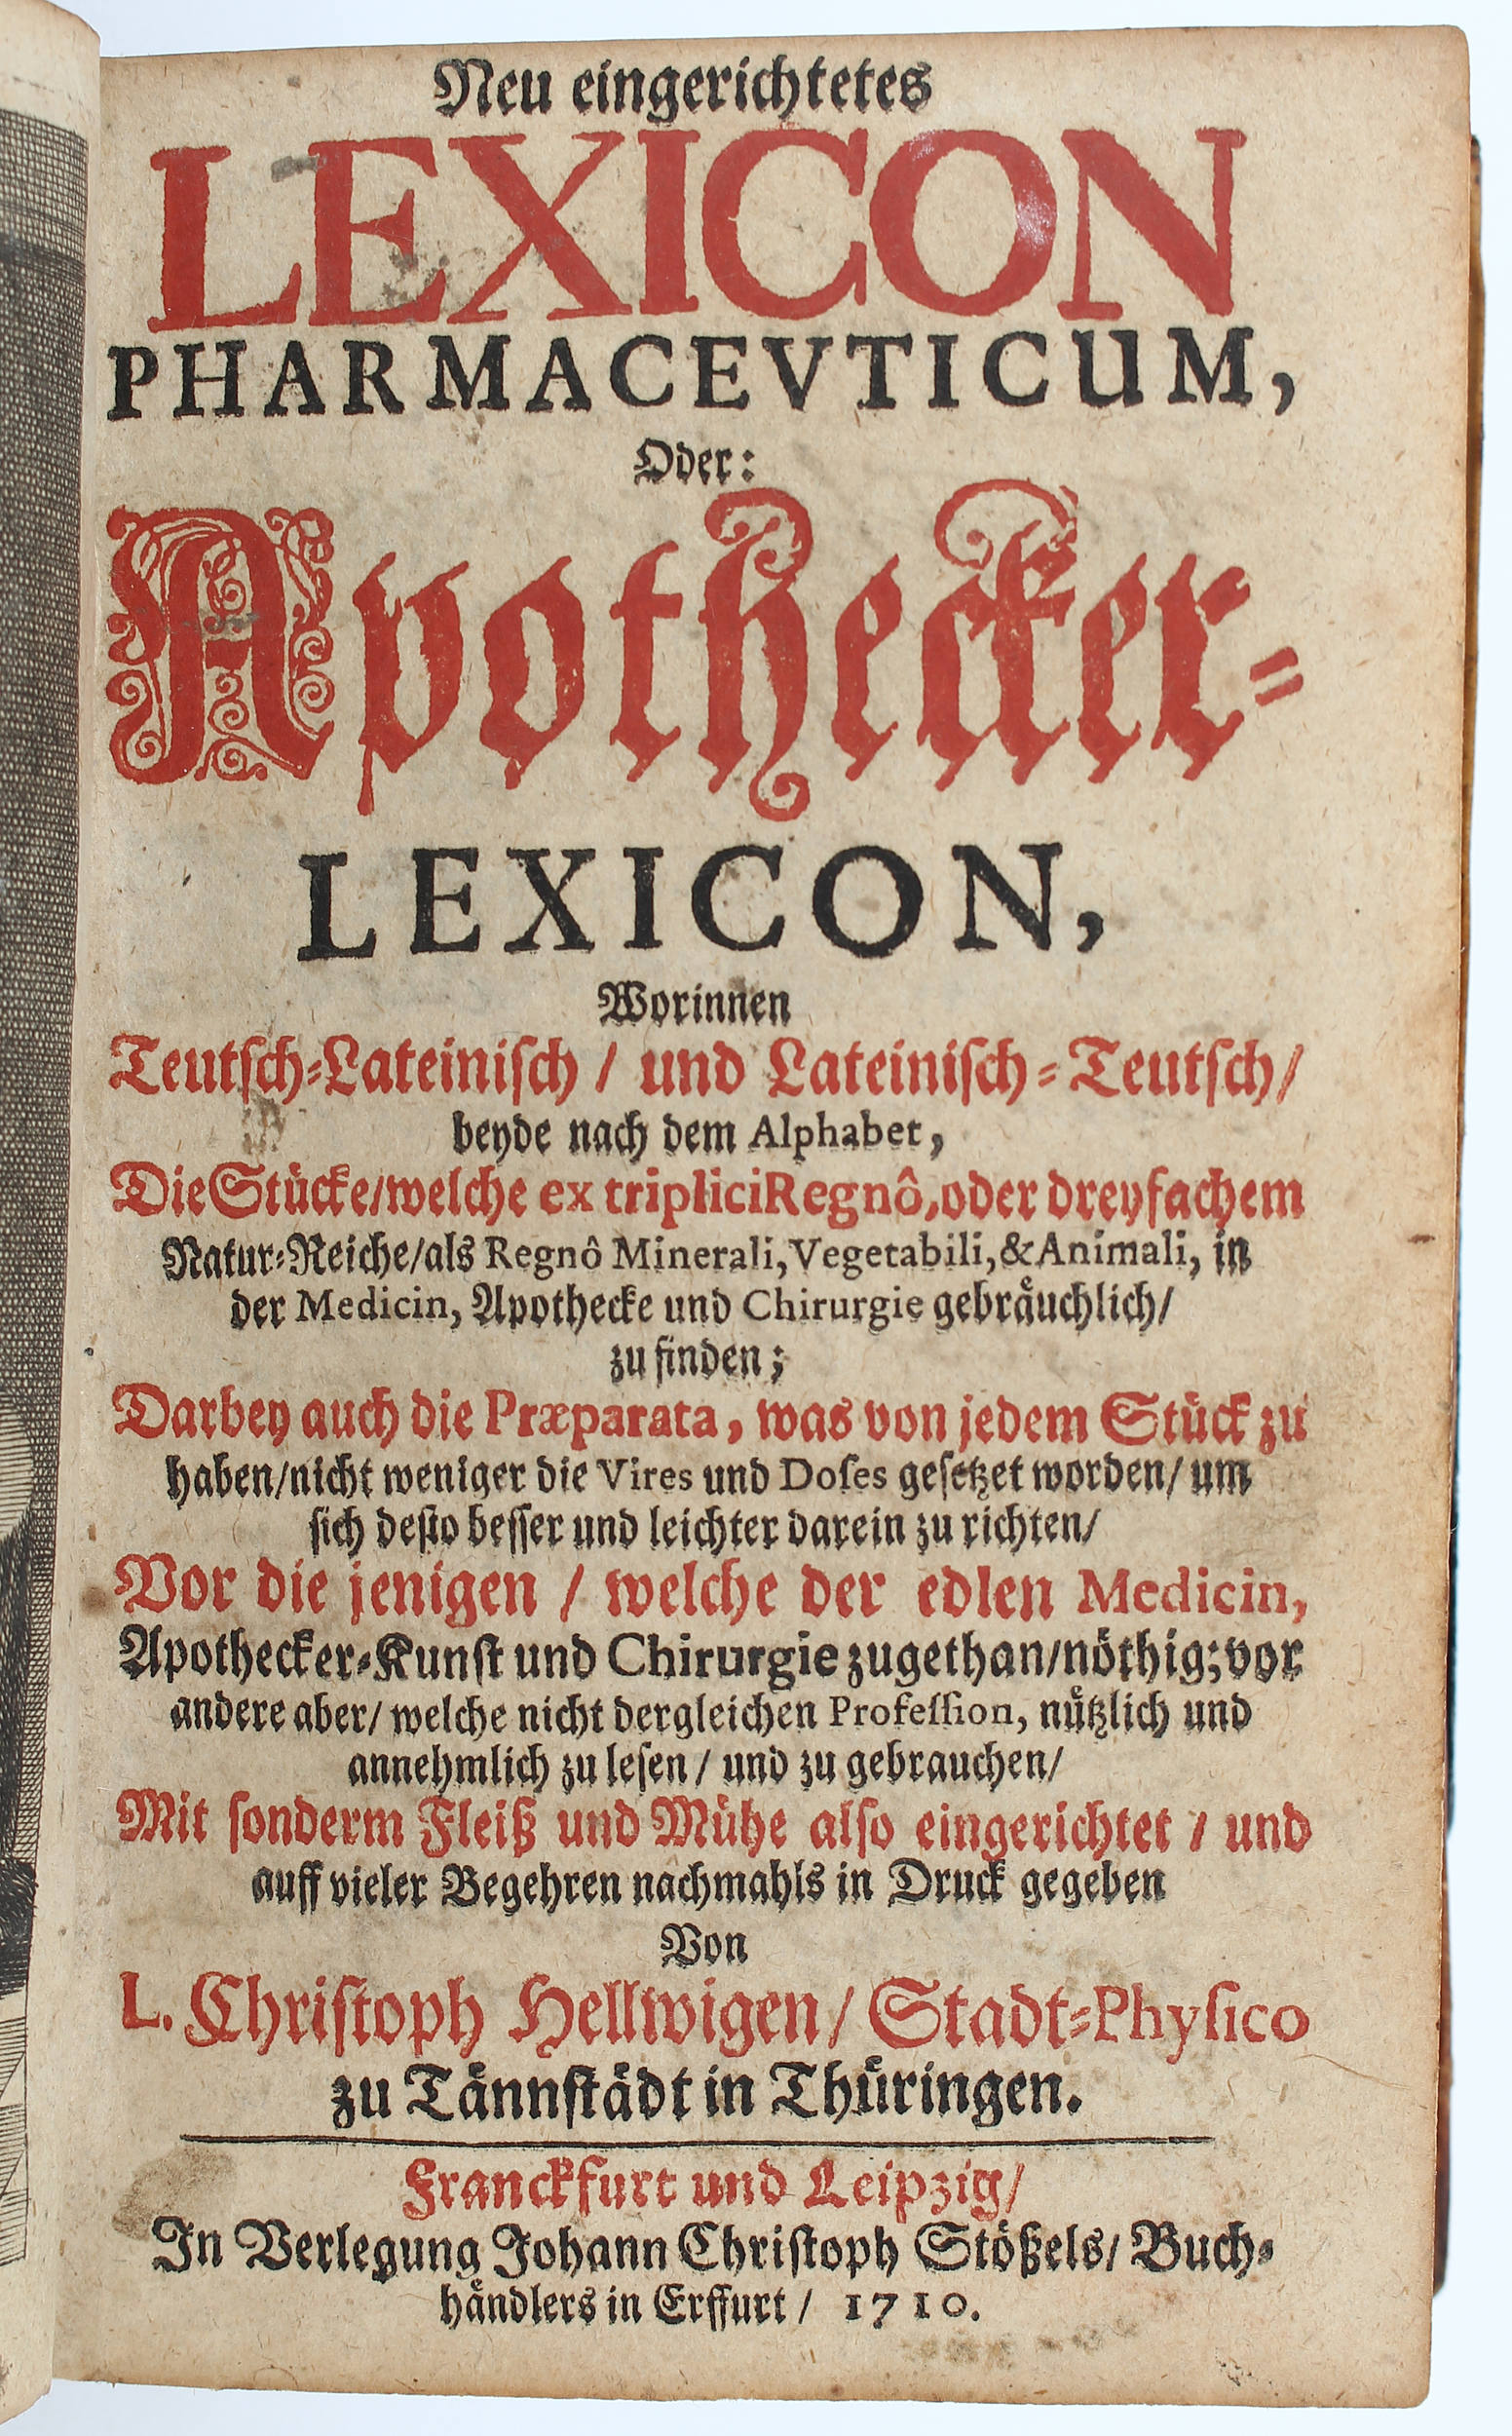 Neu eingerichtetes
LEXICON
PHARMACEVTICUM,
Oder:
Apothecker-
LEXICON,
Worinnen
Teutſch-Lateiniſch / und Lateiniſch-Teutſch/
beyde nach dem Alphabet,
Die Stücke/welche ex tripliciRegnô,oder dreyfachem
Natur-Reiche/als Regnô Minerali,Vegetabili,&Animali, in
der Medicin, Apothecke und Chirurgie gebräuchlich/
zu finden;
Darbey auch die Præparata, was von jedem Stück zu
haben/nicht weniger die Vires und Doſes geſetzet worden/ um
ſich deſto beſſer und leichter darein zu richten/
Vor die jenigen / welche der edlen Medicin,
Apothecker-Kunſt und Chirurgie zugethan/nöthig;vor
andere aber/ welche nicht dergleichen Profeſſion, nützlich und
annehmlich zu leſen/ und zu gebrauchen/
Mit ſonderm Fleiß und Mühe alſo eingerichtet / und
auff vieler Begehren nachmahls in Druck gegeben
Von
L. Chriſtoph Hellwigen/ Stadt-Phyſico
zu Tännſtädt in Thüringen.
Franckfurt und Leipzig/
In Verlegung Johann Chriſtoph Stößels/ Buch-
händlers in Erffurt / 1710.